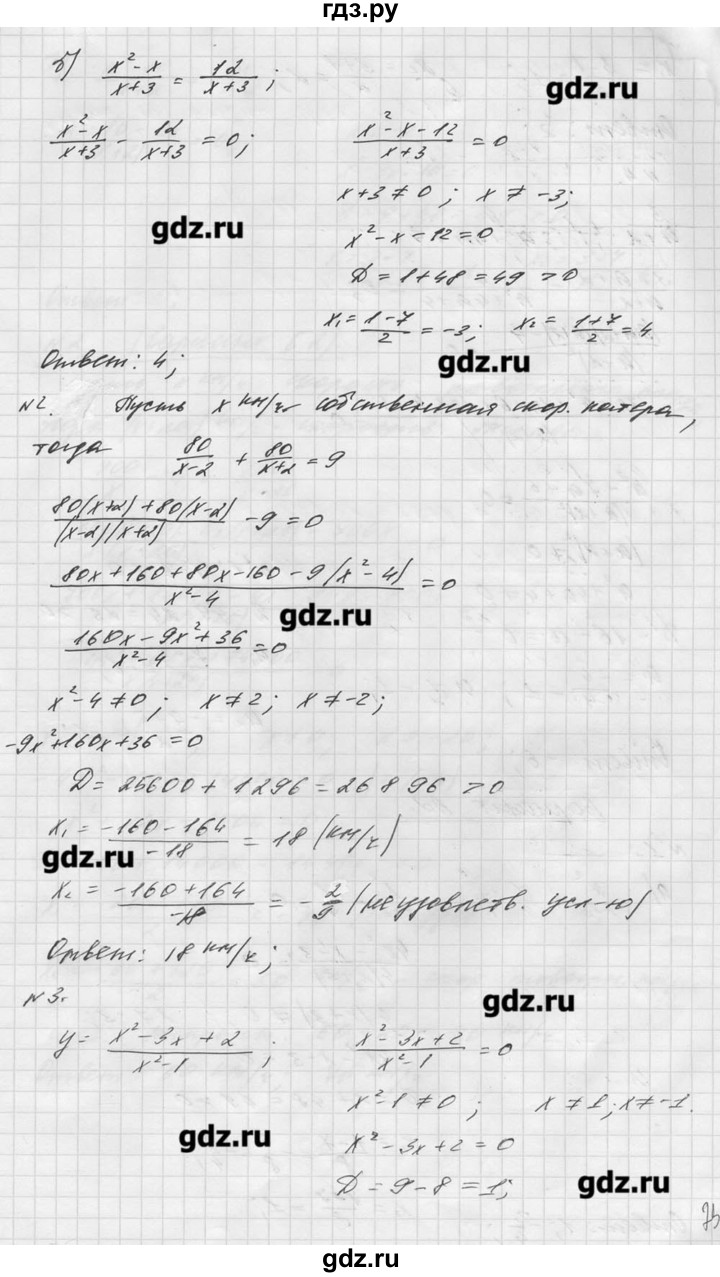 гдз.ру
б) (x²-x)/(x+3) = 12/(x+3);
gdz.ru
(x²-x)/(x+3) - 12/(x+3) = 0; (x²-x-12)/(x+3) = 0
x+3≠0; x≠-3;
gdz.ru
x²-x-12=0
D=1+48=49>0
x₁=(1-7)/2=-3; x₂=(1+7)/2=4
Ответ: 4;
gdz.ru
№2. Пусть x км/ч собственная скор. катера,
тогда 80/(x-2) + 80/(x+2) = 9
(80(x+2)+80(x-2))/((x-2)(x+2)) - 9 = 0
(80x+160+80x-160-9(x²-4))/(x²-4) = 0
gdz.ru
(160x-9x²+36)/(x²-4) = 0
x²-4≠0; x≠2; x≠-2;
-9x²+160x+36=0
D=25600+1296=26896>0
x₁=(-160-164)/(-18)=18(км/ч)
gdz.ru
x₂=(-160+164)/(-18)=-2/9(не удовлетв. усл-ю)
Ответ: 18 км/ч;
№3.
gdz.ru
y=(x²-3x+2)/(x²-1); (x²-3x+2)/(x²-1)=0
x²-1≠0; x≠1; x≠-1.
gdz.ru
x²-3x+2=0
D=9-8=1;
gdz.ru
gdz.ru